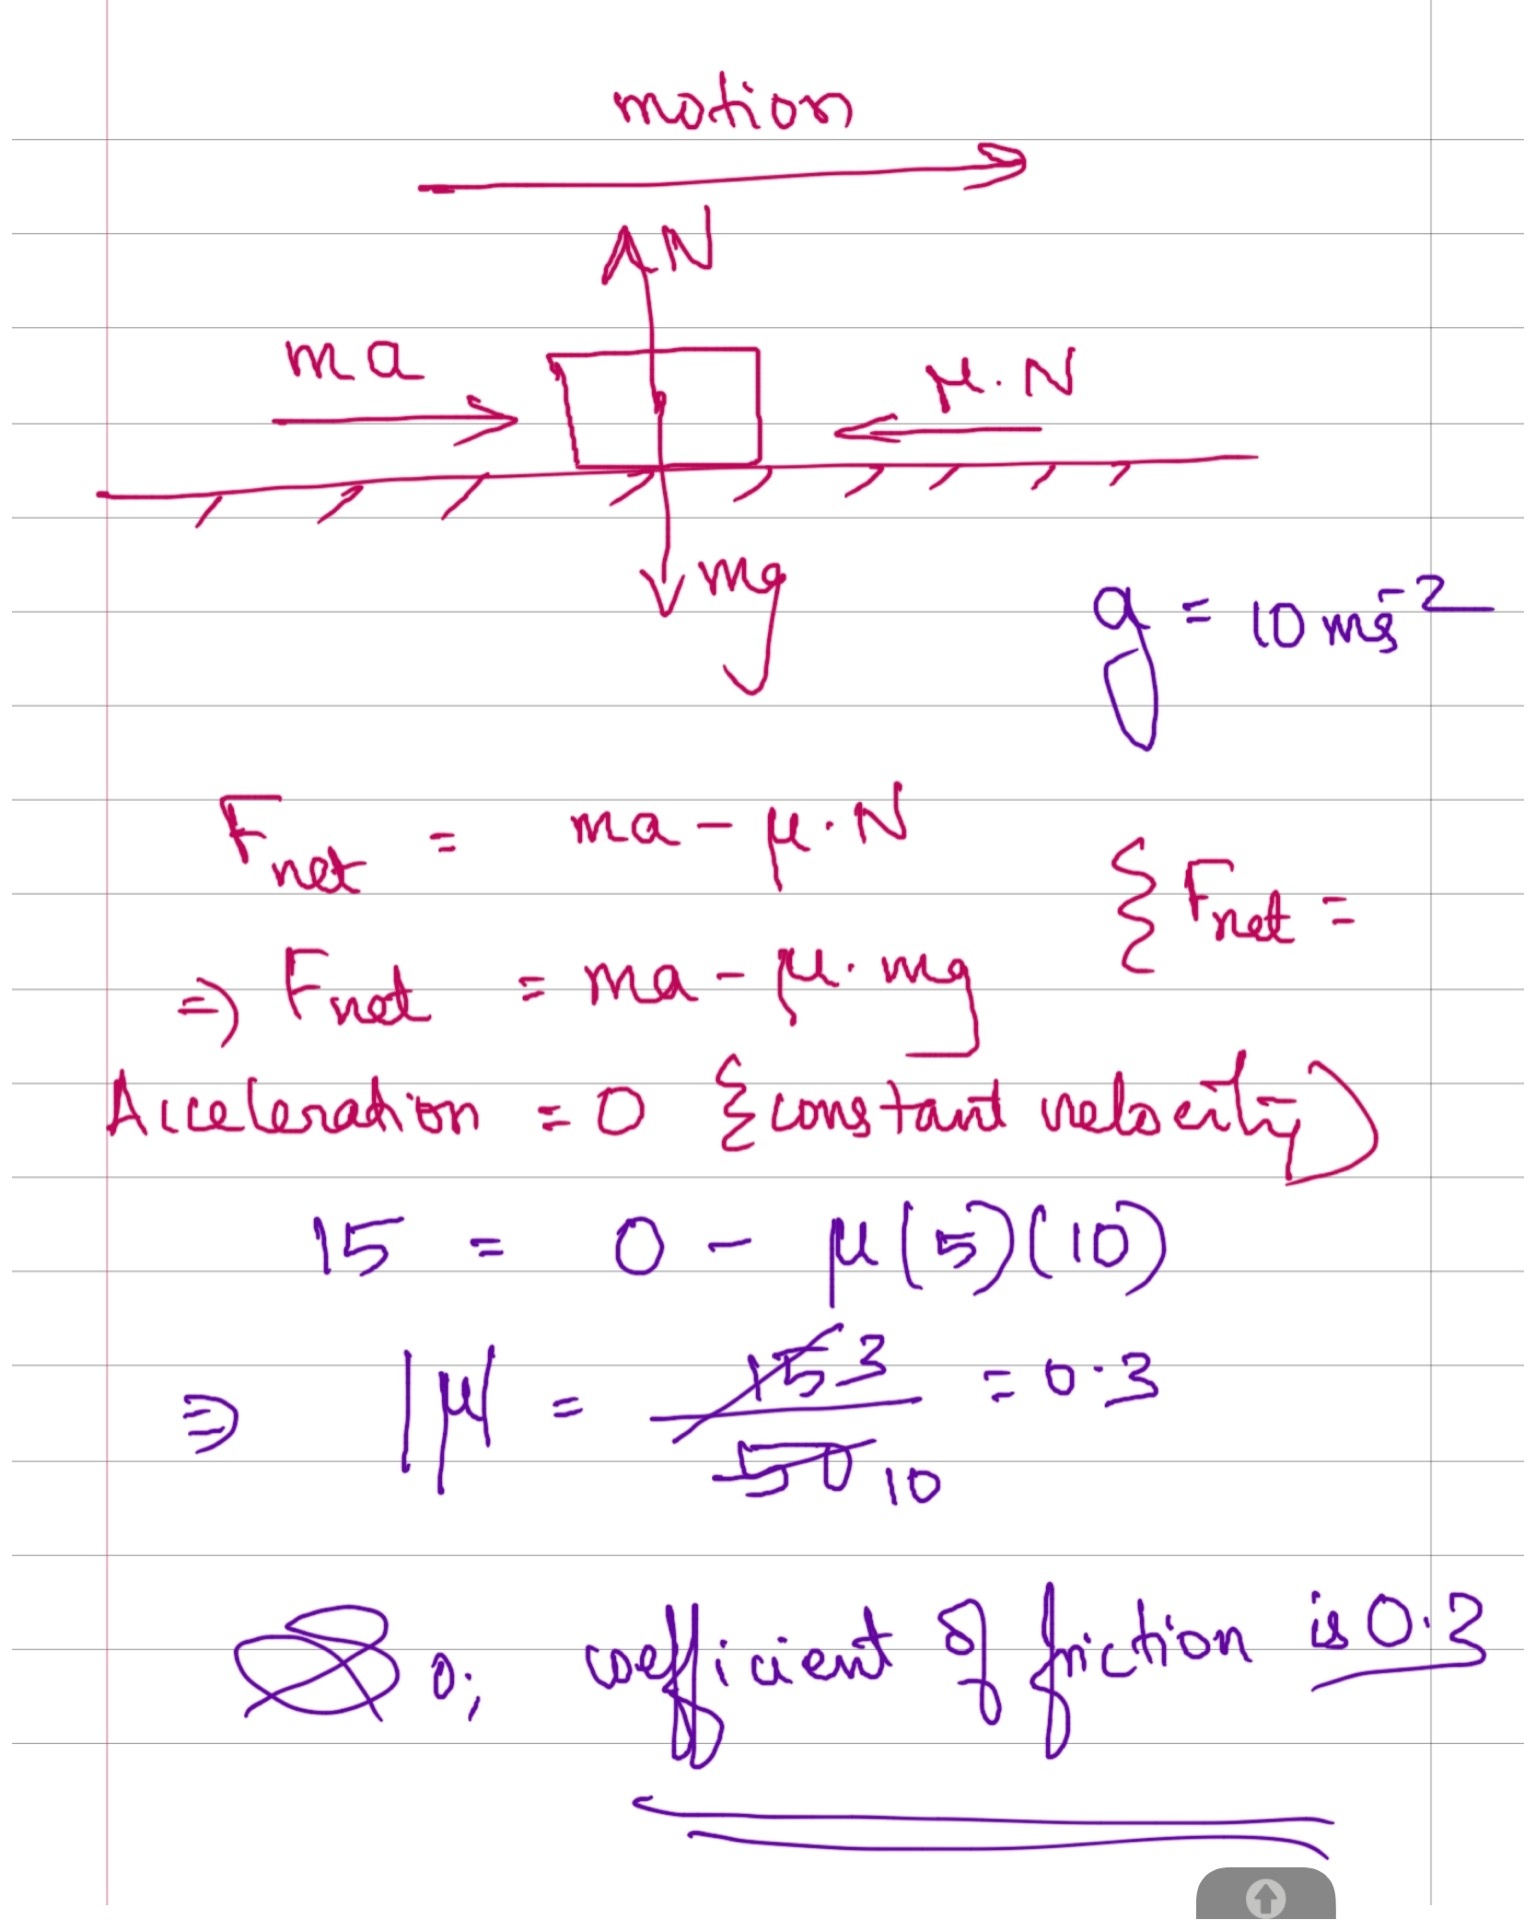 motion
N
ma
μ.N
mg
g = 10 ms⁻²
Fnet = ma - μ.N
{ Fnet =
⇒ Fnet = ma - μ. mg
Acceleration = 0 {constant velocity)
15 = 0 - μ(5)(10)
⇒ |μ| = 15 3 / 50 10 = 0.3
0; coefficient of friction is 0.3